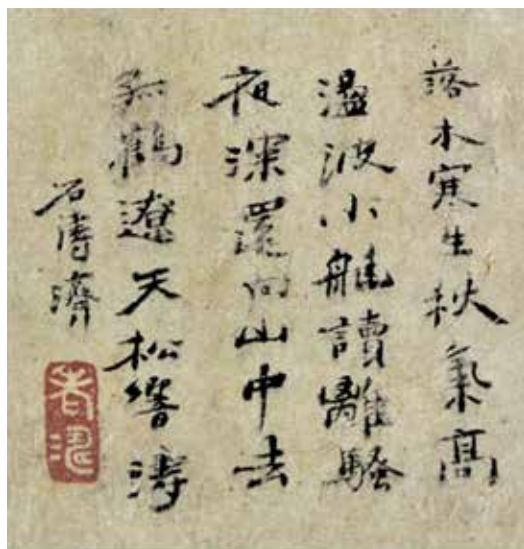 落木寒生秋氣高
盪波小艇讀離騷
夜深還向山中去
孤鶴遼天松響濤
石濤濟
老濤